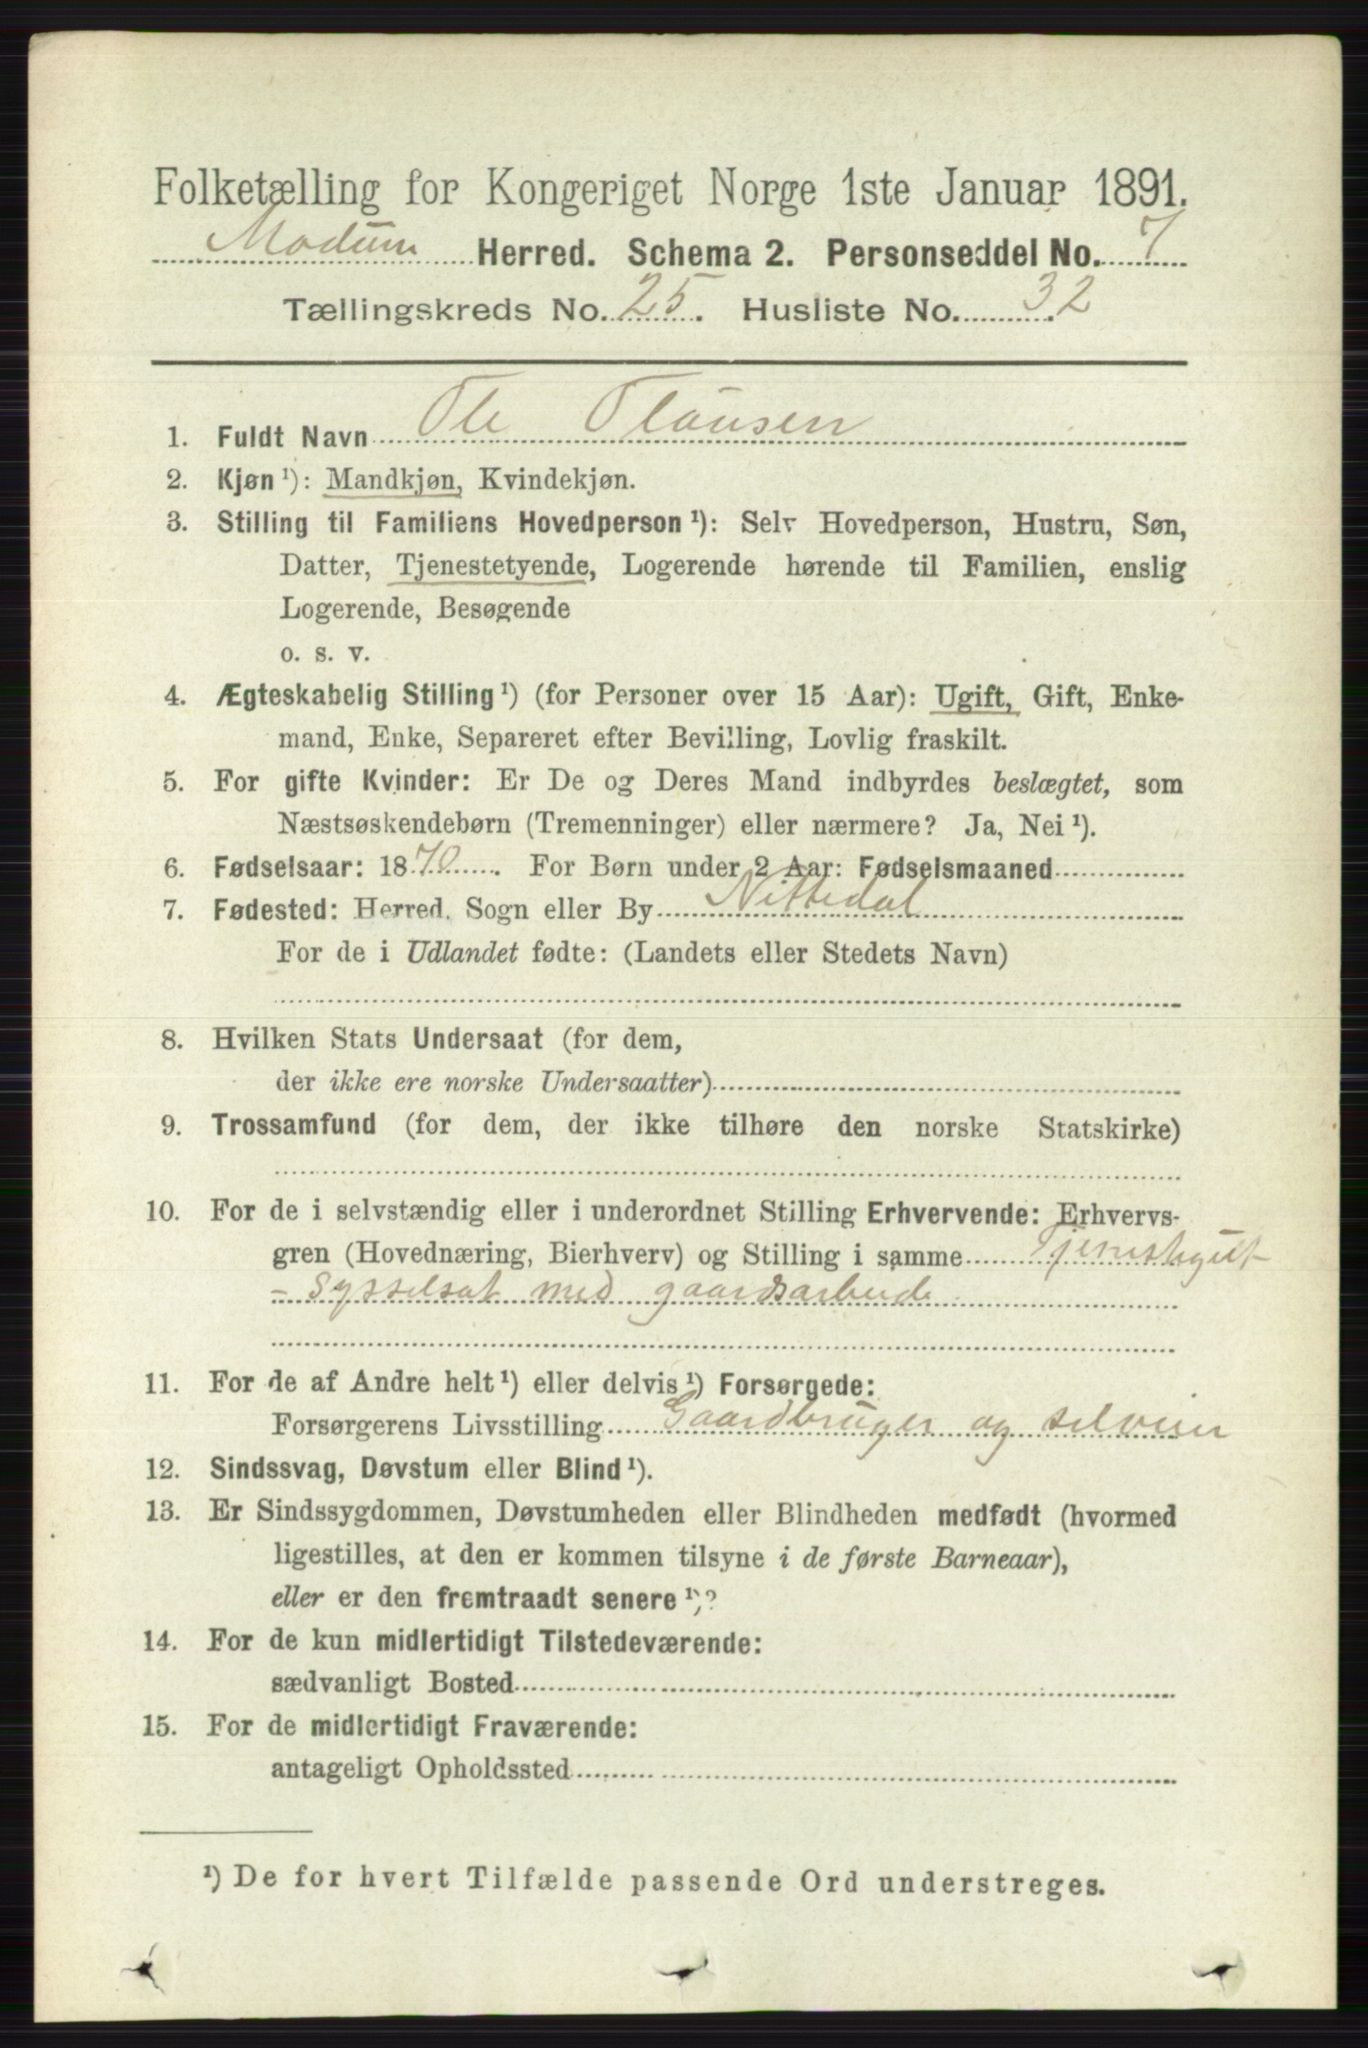 Folketælling for Kongeriget Norge 1ste Januar 1891.
Modum Herred. Schema 2. Personseddel No. 7
Tællingskreds No. 25. Husliste No. 32
1. Fuldt Navn Ole Olausen
2. Kjøn ¹): Mandkjøn, Kvindekjøn.
3. Stilling til Familiens Hovedperson ¹): Selv Hovedperson, Hustru, Søn,
Datter, Tjenestetyende, Logerende hørende til Familien, enslig
Logerende, Besøgende
o. s. v.
4. Ægteskabelig Stilling ¹) (for Personer over 15 Aar): Ugift, Gift, Enke-
mand, Enke, Separeret efter Bevilling, Lovlig fraskilt.
5. For gifte Kvinder: Er De og Deres Mand indbyrdes beslægtet, som
Næstsøskendebørn (Tremenninger) eller nærmere? Ja, Nei ¹).
6. Fødselsaar: 1870. For Børn under 2 Aar: Fødselsmaaned
7. Fødested: Herred, Sogn eller By Nittedal
For de i Udlandet fødte: (Landets eller Stedets Navn)
8. Hvilken Stats Undersaat (for dem,
der ikke ere norske Undersaatter)
9. Trossamfund (for dem, der ikke tilhøre den norske Statskirke)
10. For de i selvstændig eller i underordnet Stilling Erhvervende: Erhvervs-
gren (Hovednæring, Bierhverv) og Stilling i samme Tjenestegut
- sysselsat med gaardsarbeide
11. For de af Andre helt ¹) eller delvis ¹) Forsørgede:
Forsørgerens Livsstilling Gaardbruger og
12. Sindssvag, Døvstum eller Blind ¹).
13. Er Sindssygdommen, Døvstumheden eller Blindheden medfødt (hvormed
ligestilles, at den er kommen tilsyne i de første Barneaar),
eller er den fremtraadt senere ¹)?
14. For de kun midlertidigt Tilstedeværende:
sædvanligt Bosted
15. For de midlertidigt Fraværende:
antageligt Opholdssted
¹) De for hvert Tilfælde passende Ord understreges.